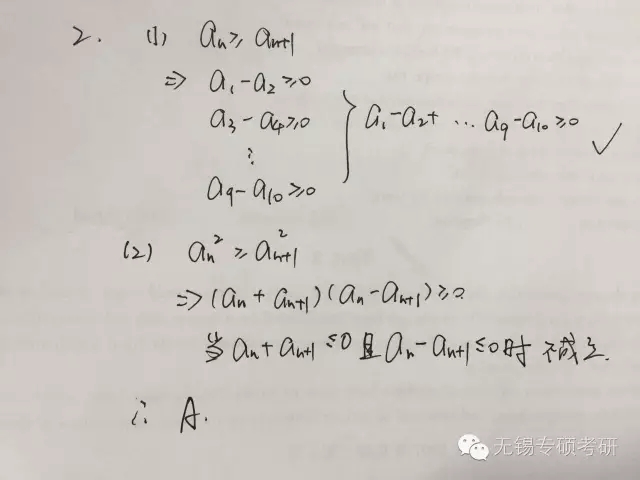 2. (1) aₙ ≥ aₙ₊₁
⇒ a₁ - a₂ ≥ 0
a₃ - a₄ ≥ 0
⋮
a₉ - a₁₀ ≥ 0
} a₁ - a₂ + … a₉ - a₁₀ ≥ 0 ✓
(2) aₙ² ≥ aₙ₊₁²
⇒ (aₙ + aₙ₊₁)(aₙ - aₙ₊₁) ≥ 0
当 aₙ + aₙ₊₁ ≤ 0 且 aₙ - aₙ₊₁ ≤ 0 时 不成立.
∴ A.
无锡专硕考研